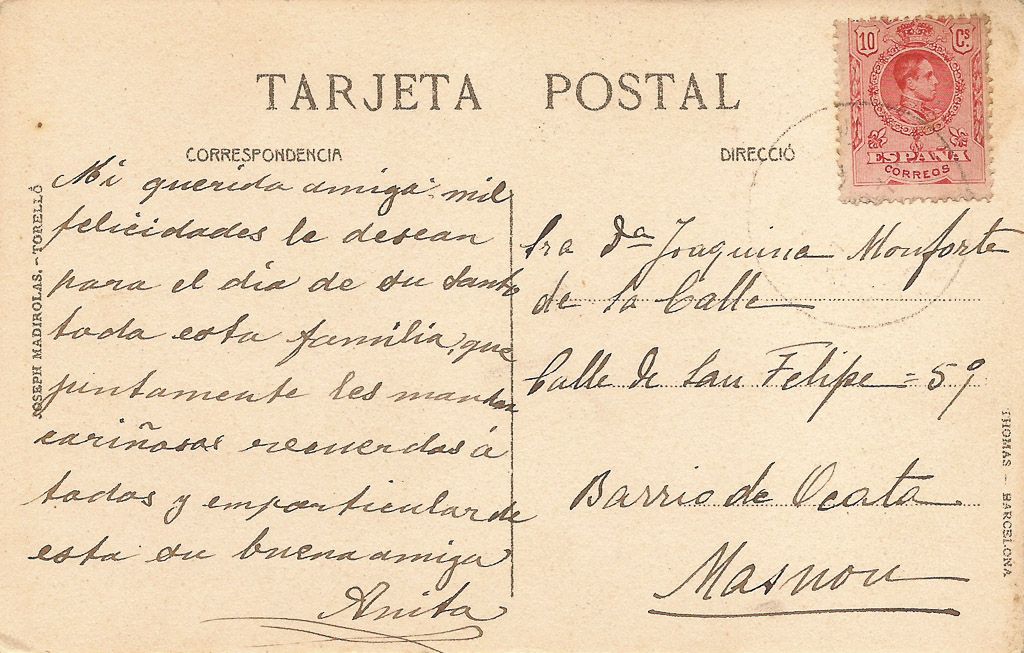 TARJETA POSTAL
10 Cs
ESPAÑA
CORREOS
CORRESPONDENCIA
DIRECCIÓ
JOSEPH MADIROLAS. - TORELLÓ
Mi querida amiga: mil
felicidades le desean
para el dia de su santo
toda esta familia, que
juntamente les mandan
cariñosos recuerdos á
todos y emparticular de
esta su buena amiga
Anita
Sra Dª Joaquina Monforte
de la Calle
Calle de San Felipe = 59
Barrio de Ocata
Masnou
THOMAS - BARCELONA